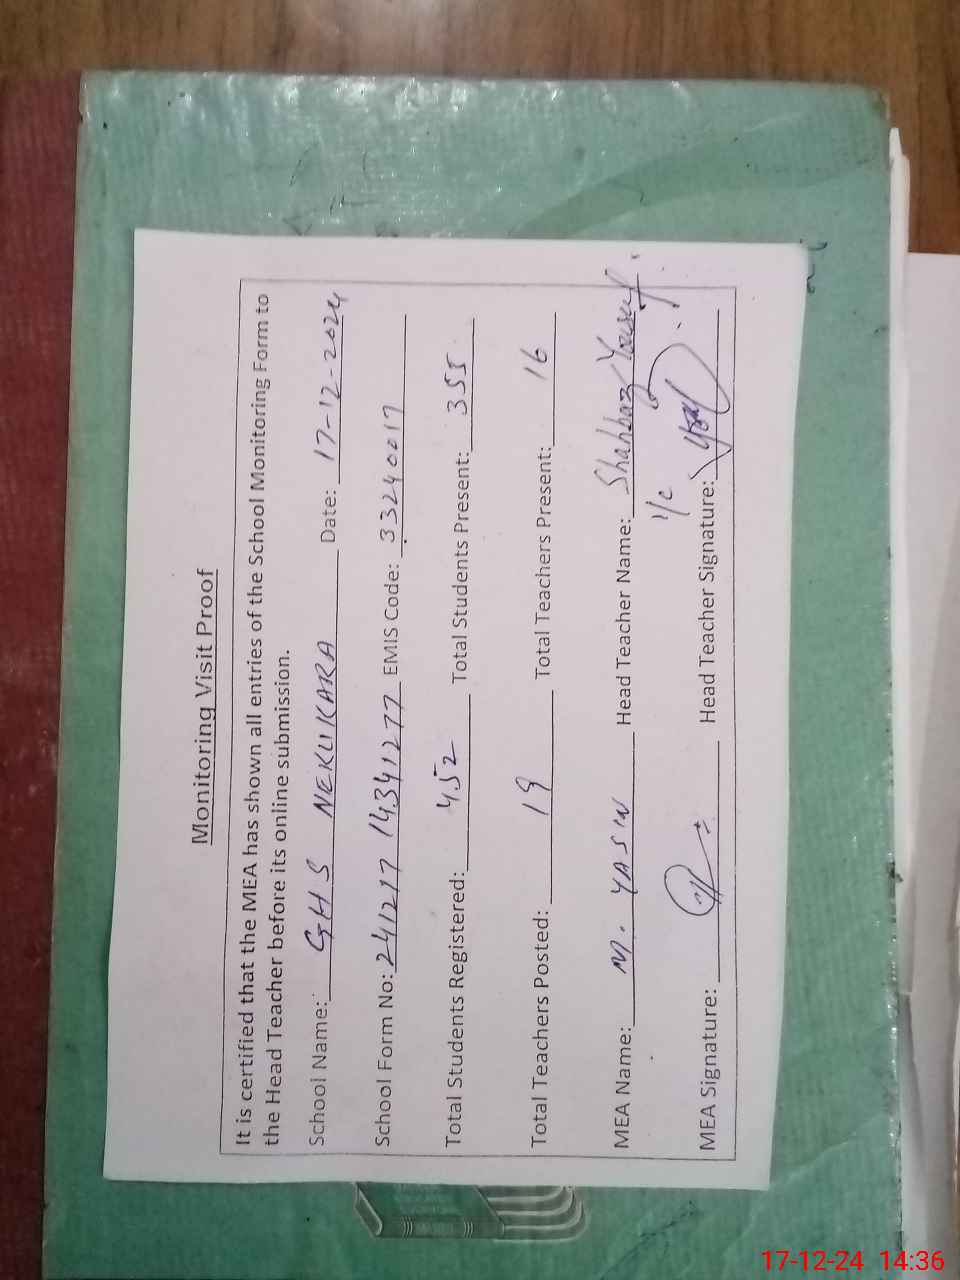 Monitoring Visit Proof
It is certified that the MEA has shown all entries of the School Monitoring Form to
the Head Teacher before its online submission.
School Name: GHS NEKUKARA Date: 17-12-2024
School Form No: 241217 14341277 EMIS Code: 33240017
Total Students Registered: 452 Total Students Present: 355
Total Teachers Posted: 19 Total Teachers Present: 16
MEA Name: M. YASIN Head Teacher Name: Shahbaz Yousuf
I/C
MEA Signature: Head Teacher Signature:
17-12-24 14:36